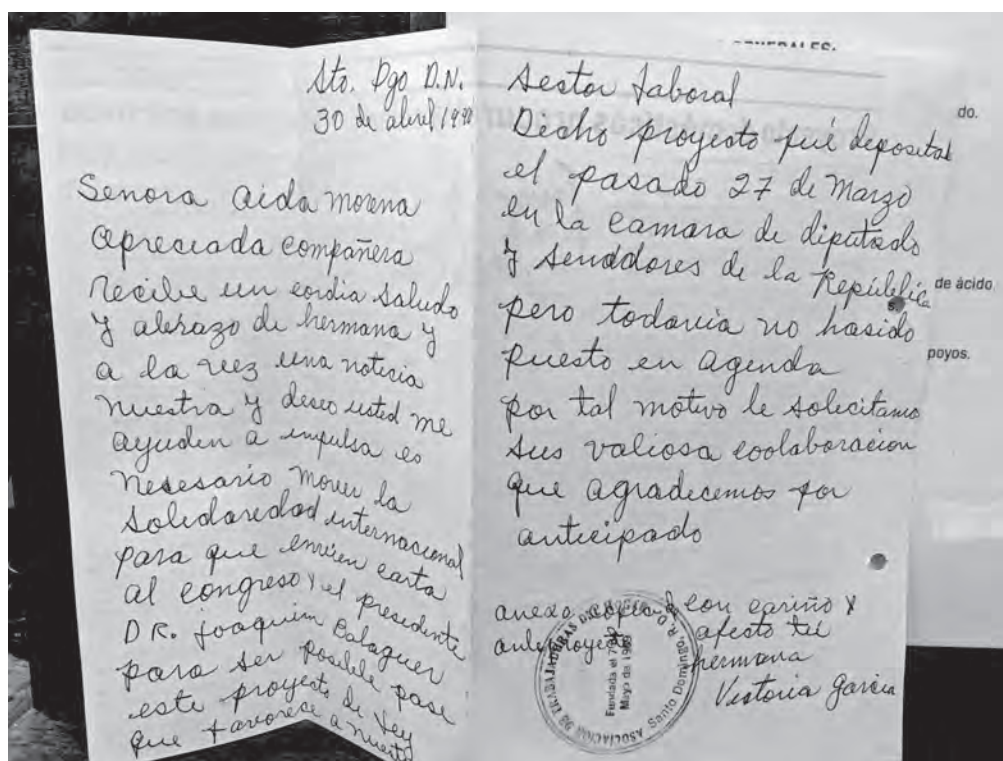 Sto. Dgo D.N.
30 de abril 1992
Senora Aida Morena
Apreciada Compañera
Recibe un cordia saludo
y abrazo de hermana y
a la vez una noticia
nuestra y deseo usted me
ayuden a impulsa es
nesesario mover la
Solidaredad internacional
para que envien carta
al congreso y el presidente
DR. Joaquin Balaguer
para ser posible pase
este proyecto de Ley
que favorese a nuestro
Sestor Laboral
Decho proyecto fué depositad
el pasado 27 de Marzo
en la Camara de diputado
y Senadores de la República
pero todavia no hasido
puesto en agenda
por tal motivo le solicitamo
sus valiosa coolaboracion
que agradecemos por
anticipado
anexo copia
anteproyect
con cariño y
afecto tu
hermana
Vistoria Garcia
ASOCIACION DE TRABAJADORAS
Santo Domingo, R.D.
Fundada el 7 de
Mayo de 1989
GENERALES:
do.
de ácido.
s
poyos.